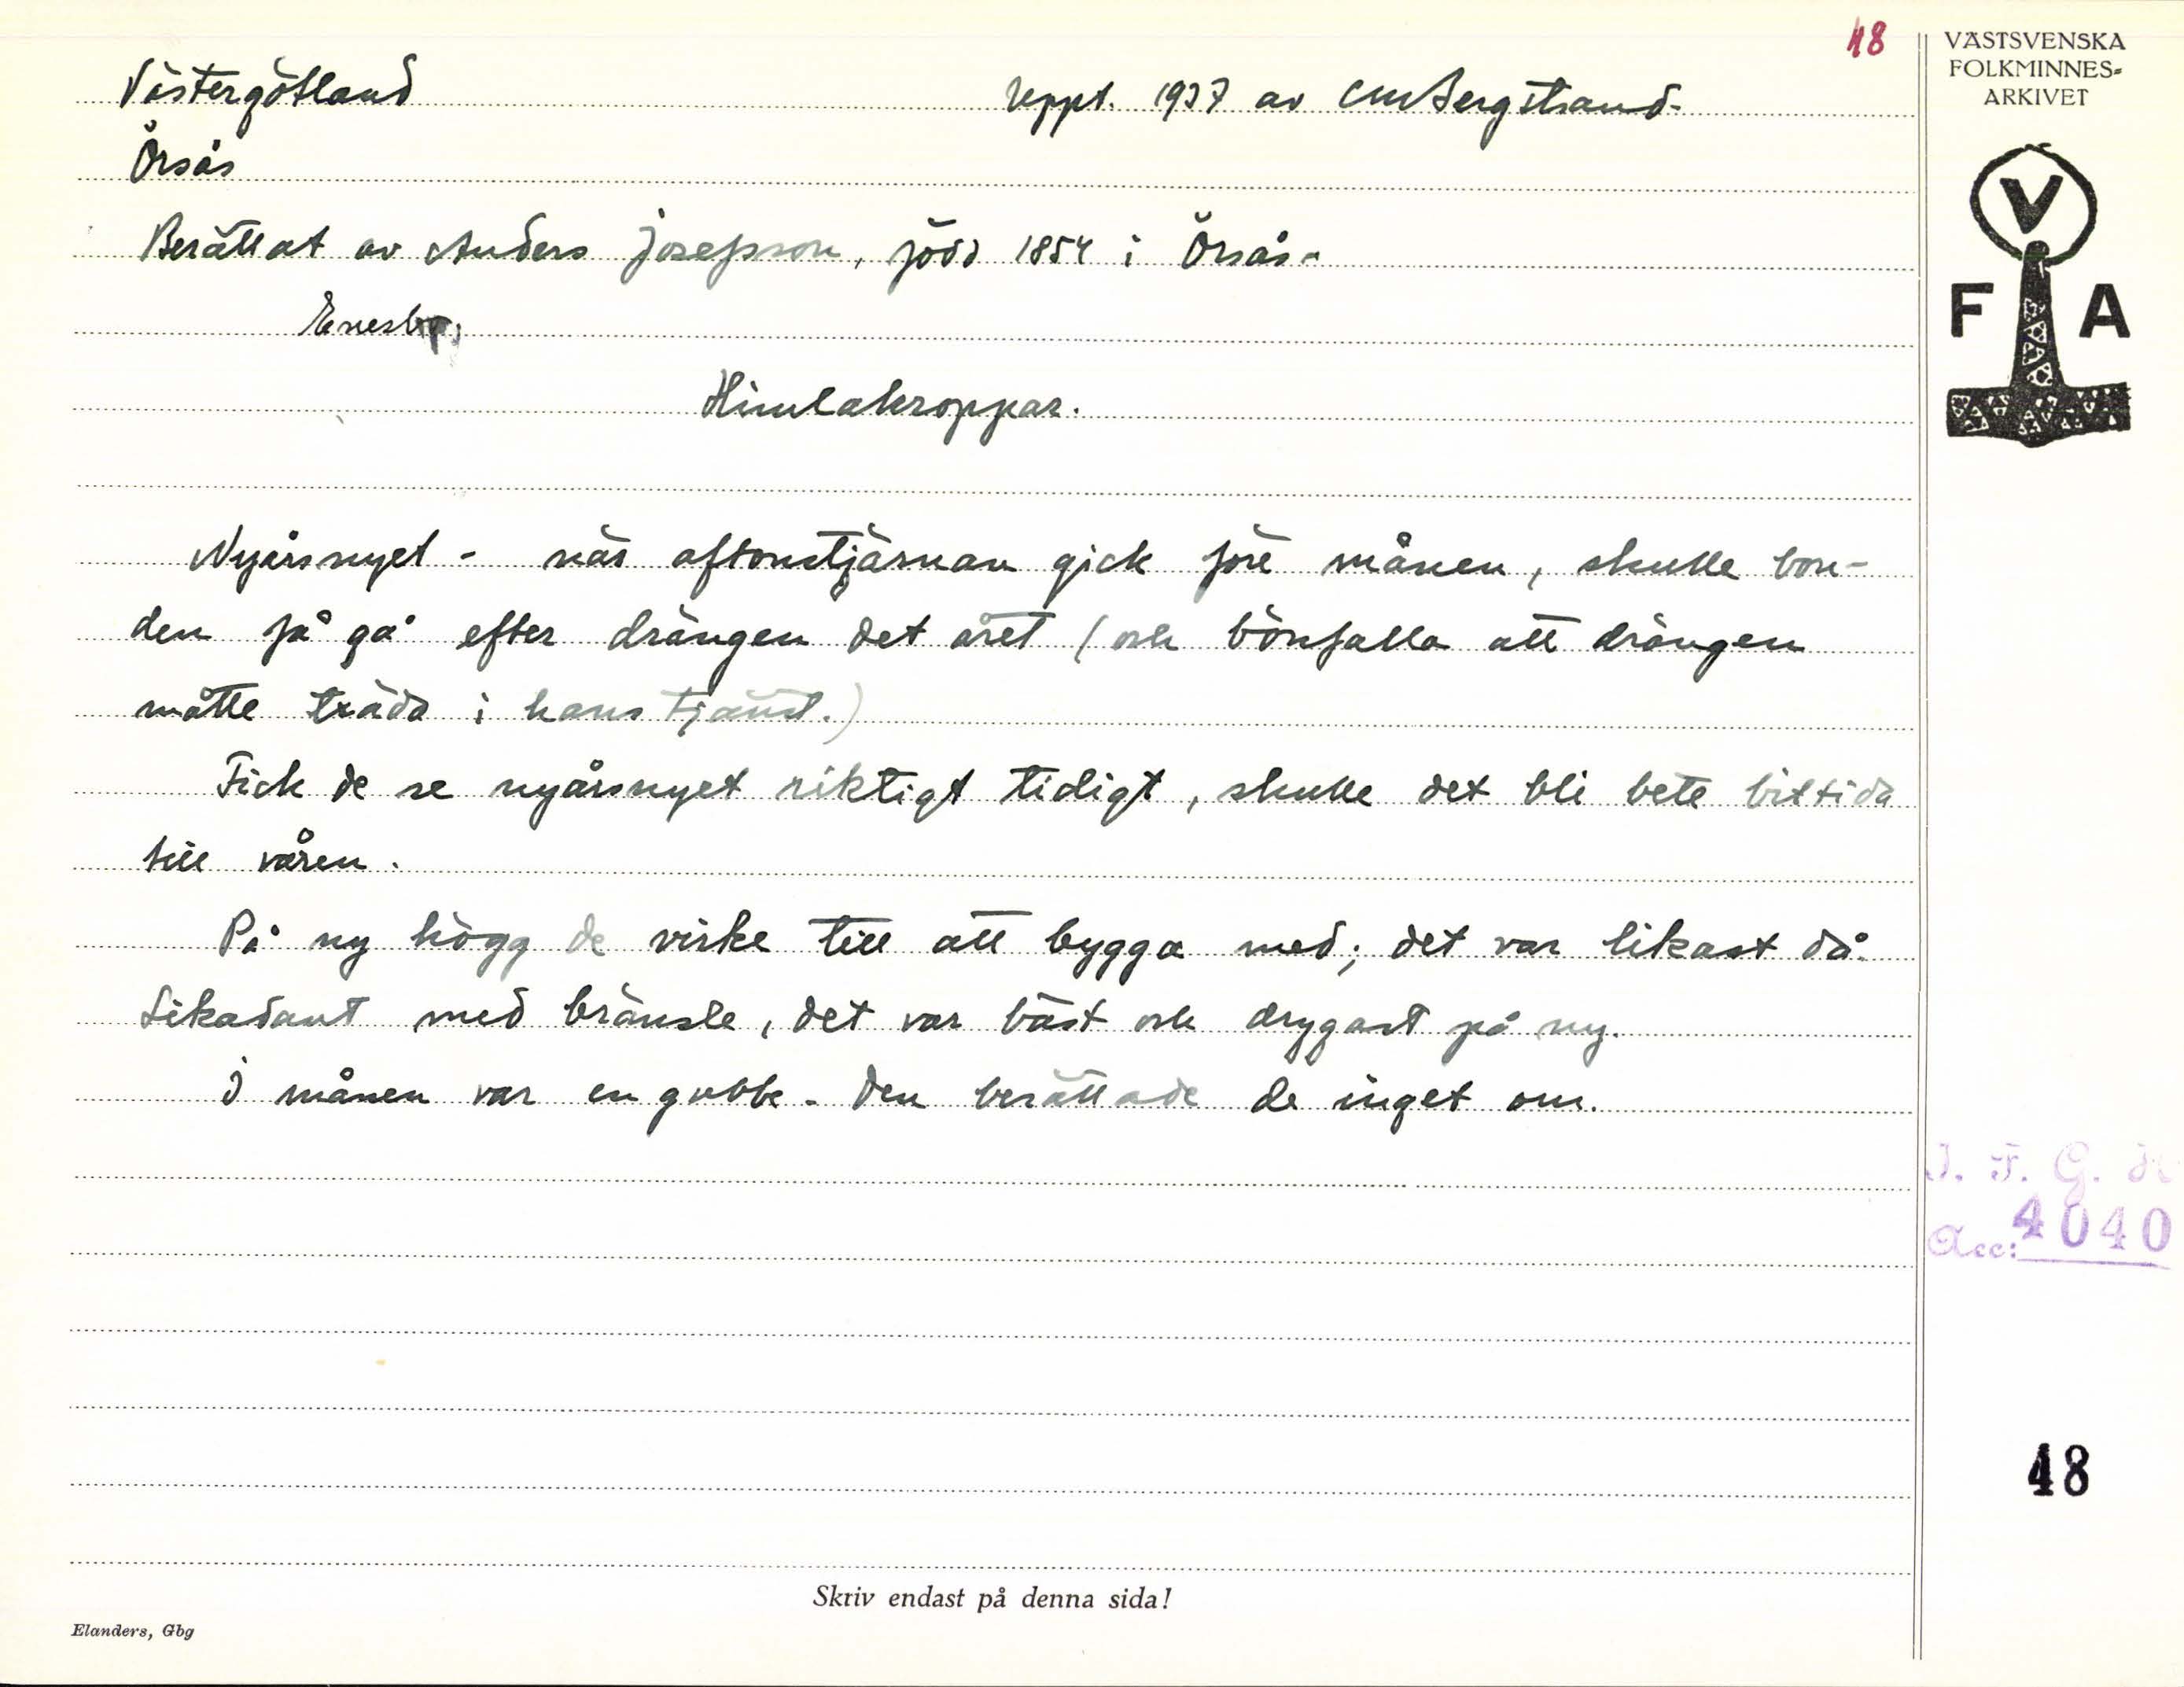 48
VÄSTSVENSKA
FOLKMINNES=
ARKIVET
Västergötland Uppt. 1937 av CM Bergstrand.
Örsås
Berättat av Anders Josefsson, född 1854 i Örsås.
V
F A
Himlakroppar.
Nyårsnyet - när aftonstjärnan gick före månen, skulle bon-
den få gå efter drängen det året (och bönfalla att drängen
måtte träda i hans tjänst.)
Fick de se nyårsnyet riktigt tidigt, skulle det bli bete bittida
till våren.
På ny högg de virke till att bygga med; det var likast då.
Likadant med bränsle, det var bäst och drygast på ny.
I månen var en gubbe. Den berättade de inget om.
I. F. G. H
Acc: 4040
48
Skriv endast på denna sida!
Elanders, Gbg